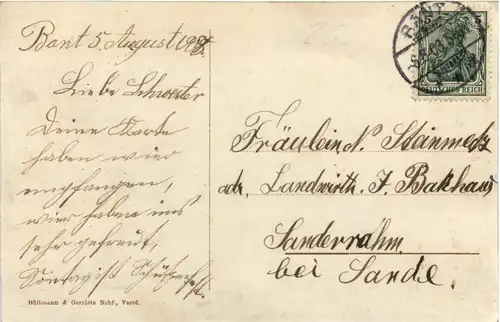 Bant 5. August 1908.
Liebe Schwester
Deine Karte
haben wier
empfangen,
wier haben uns
sehr gefreut,
Sontag ist Schützenfest.
Bültmann & Gerriets Nchf., Varel.
BANT
DEUTSCHES REICH
Fräulein N. Steinmetz
adr. Landwirth. J. Bakhaus
Sanderrahm.
bei Sande.